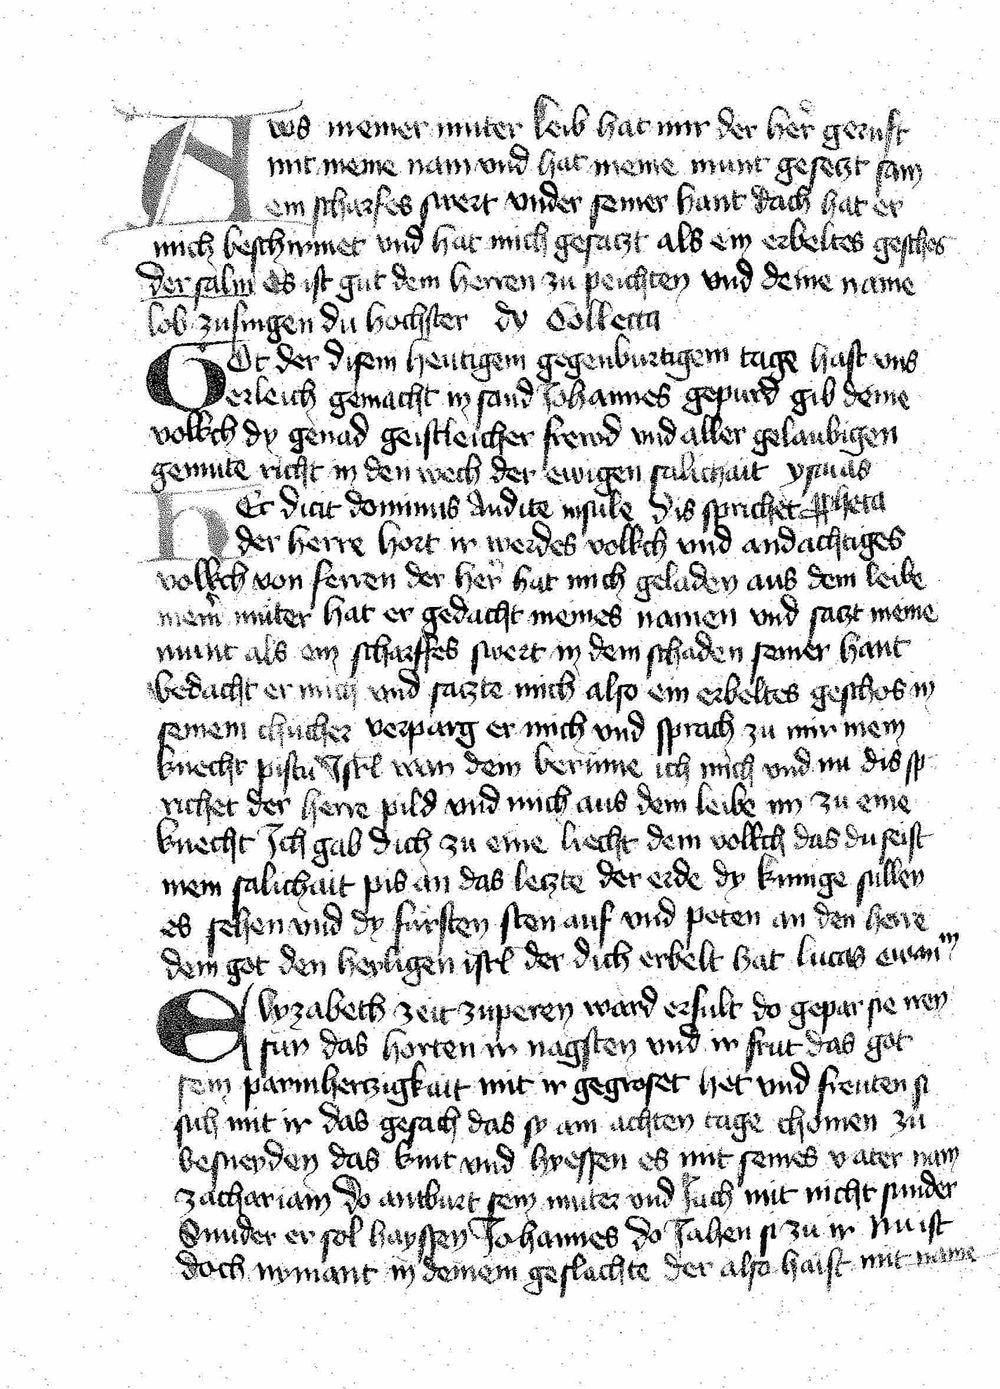 Aws meiner muter leib hat mir der her geruft
mit meine nam vnd hat meine munt gesetzt sam
ein scharfes swert vnder seiner hant dach hat er
mich beschirmet vnd hat mich gesatzt als ein erbeltes geschos
der salm Es ist gut dem herren zu peichten vnd deine name
lob zusingen du hochster dy Collecta
Got der disem heutigem gegenburtigem tage hast vns
erleich gemacht in sand Johannes gepurd gib deine
volkch dy genad geistleicher frewd vnd aller gelaubigen
gemute richt in den wech der ewigen salichait ysaias
Hec dicit dominus Audite insule Dis sprichet ppheta
der herre hort ir werdes volkch vnd andachtiges
volkch von ferren der her hat mich geladen aus dem leibe
meiner muter hat er gedacht meines namen vnd satzt meine
munt als ein scharffes swert in dem schaden seiner hant
bedacht er mich vnd satzte mich also ein erbeltes geschos in
seinem chucher verparg er mich vnd sprach zu mir mein
knecht pistu Jsrl wan dem berume ich mich vnd nu dis sp
richet der herre pild vnd mich aus dem leibe im zu eine
knecht Jch gab dich zu eine liecht dem volkch das du seist
mein salichait pis an das letzte der erde dy kunige sullen
es sehen vnd dy fursten sten auf vnd peten an den herre
dein got den heyligen isrl der dich erbelt hat lucas ewanm
Elyzabeth zeit zuperen ward erfult do gepar sie iren
sun das horten ir nagsten vnd ir frut das got
sein parmherzigkait mit ir gegroset het vnd freuten si
sich mit ir das geschach das sy am achten tage chomen zu
besneyden das kint vnd hyessen es mit seines vater nam
zachariam do antburt sein muter vnd Jach mit nicht sunder
Sunder er sol hayssen Johannes do Jahen si zu ir Nu ist
doch nymant in deinem geslachte der also haist mit name